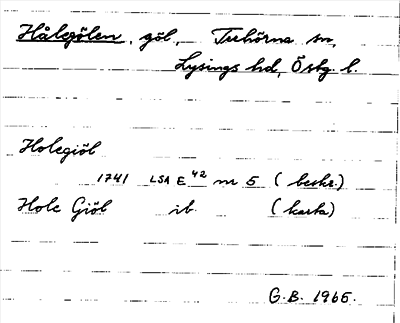 Hålegölen, göl, Trehörna sn,
Lysings hd, Östg l.
Holegiöl
1741 LSA E 42 nr 5 (beskr.)
Hole Giöl ib (karta)
G.B. 1965.